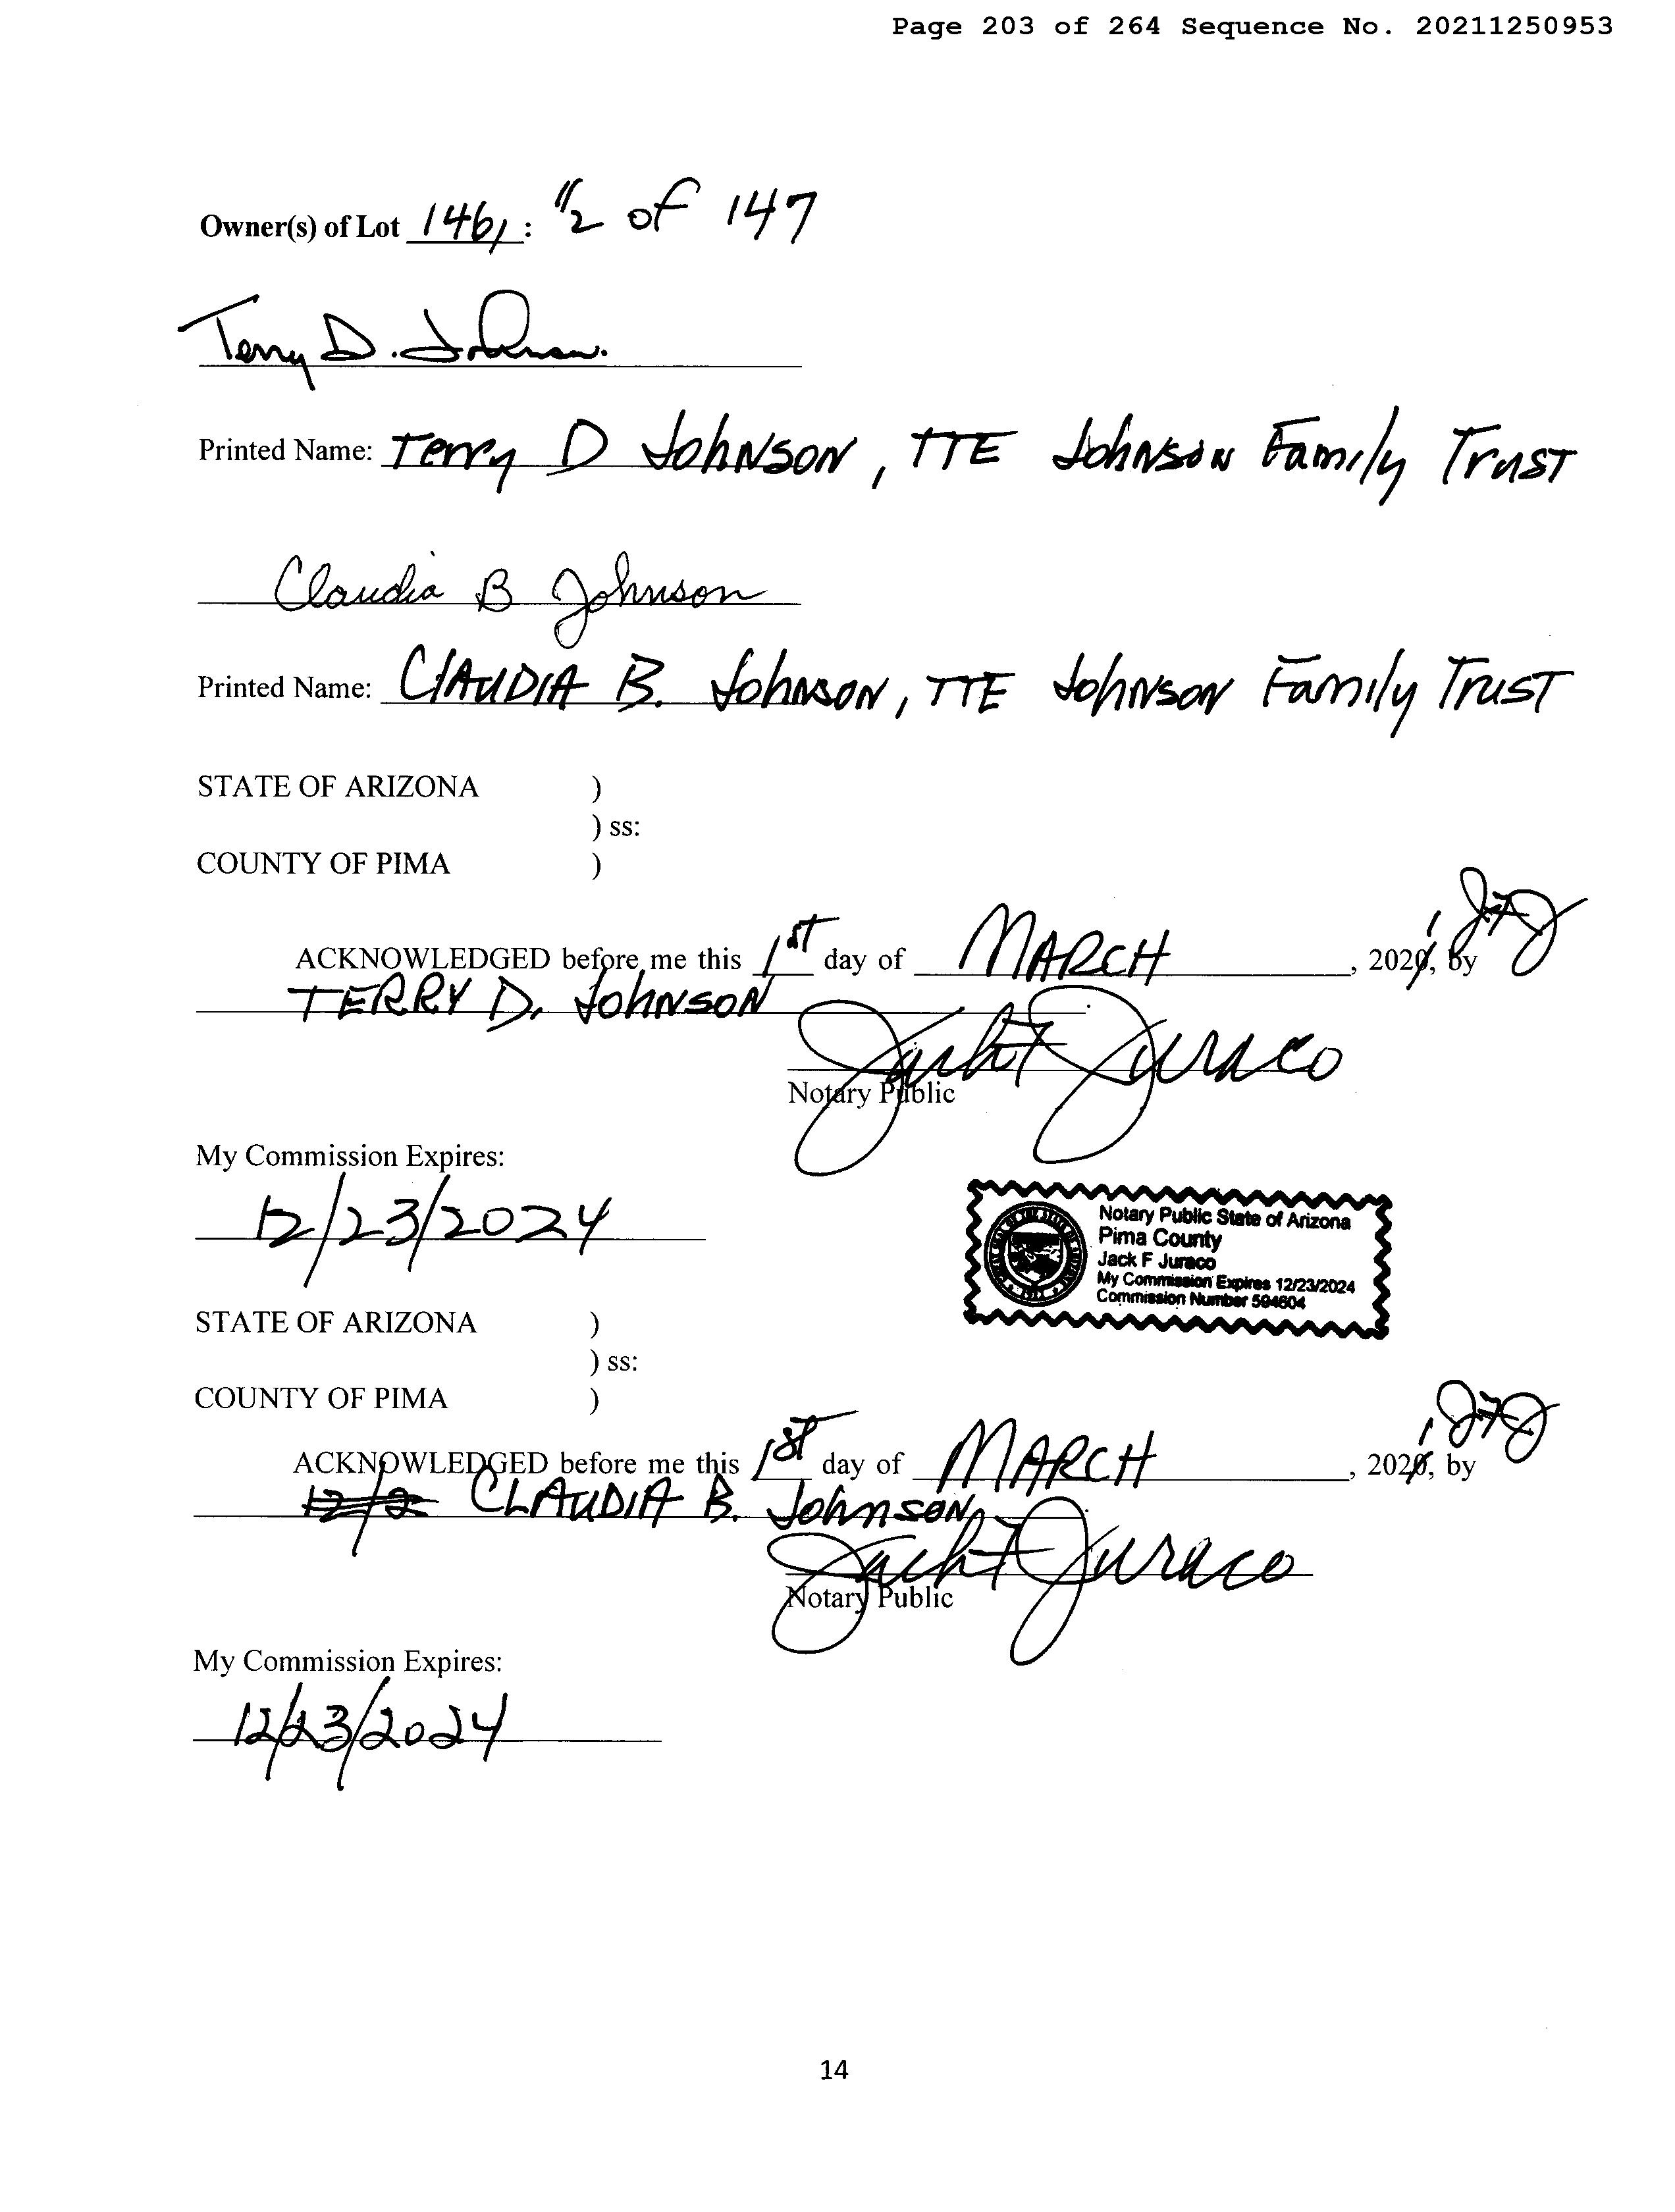 Page 203 of 264 Sequence No. 20211250953
Owner(s) of Lot 146, : 1/2 of 147
Terry D. Johnson.
Printed Name: Terry D JohNSON, TTE JohNSON Family TrusT
Claudia B Johnson
Printed Name: ClAUDIA B. JohNSON, TTE JohNSON Family TrusT
STATE OF ARIZONA )
) ss:
COUNTY OF PIMA )
ACKNOWLEDGED before me this 1ST day of MARCH, 2020, 1 by JFJ
TERRY D. JohNSON
Jack F Juraco
Notary Public
My Commission Expires:
12/23/2024
Notary Public State of Arizona
Pima County
Jack F Juraco
My Commission Expires 12/23/2024
Commission Number 594604
STATE OF ARIZONA )
) ss:
COUNTY OF PIMA )
ACKNOWLEDGED before me this 1ST day of MARCH, 2020, 1 by JFJ
12/2 CLAUDIA B. JohnSON
Jack F Juraco
Notary Public
My Commission Expires:
12/23/2024
14